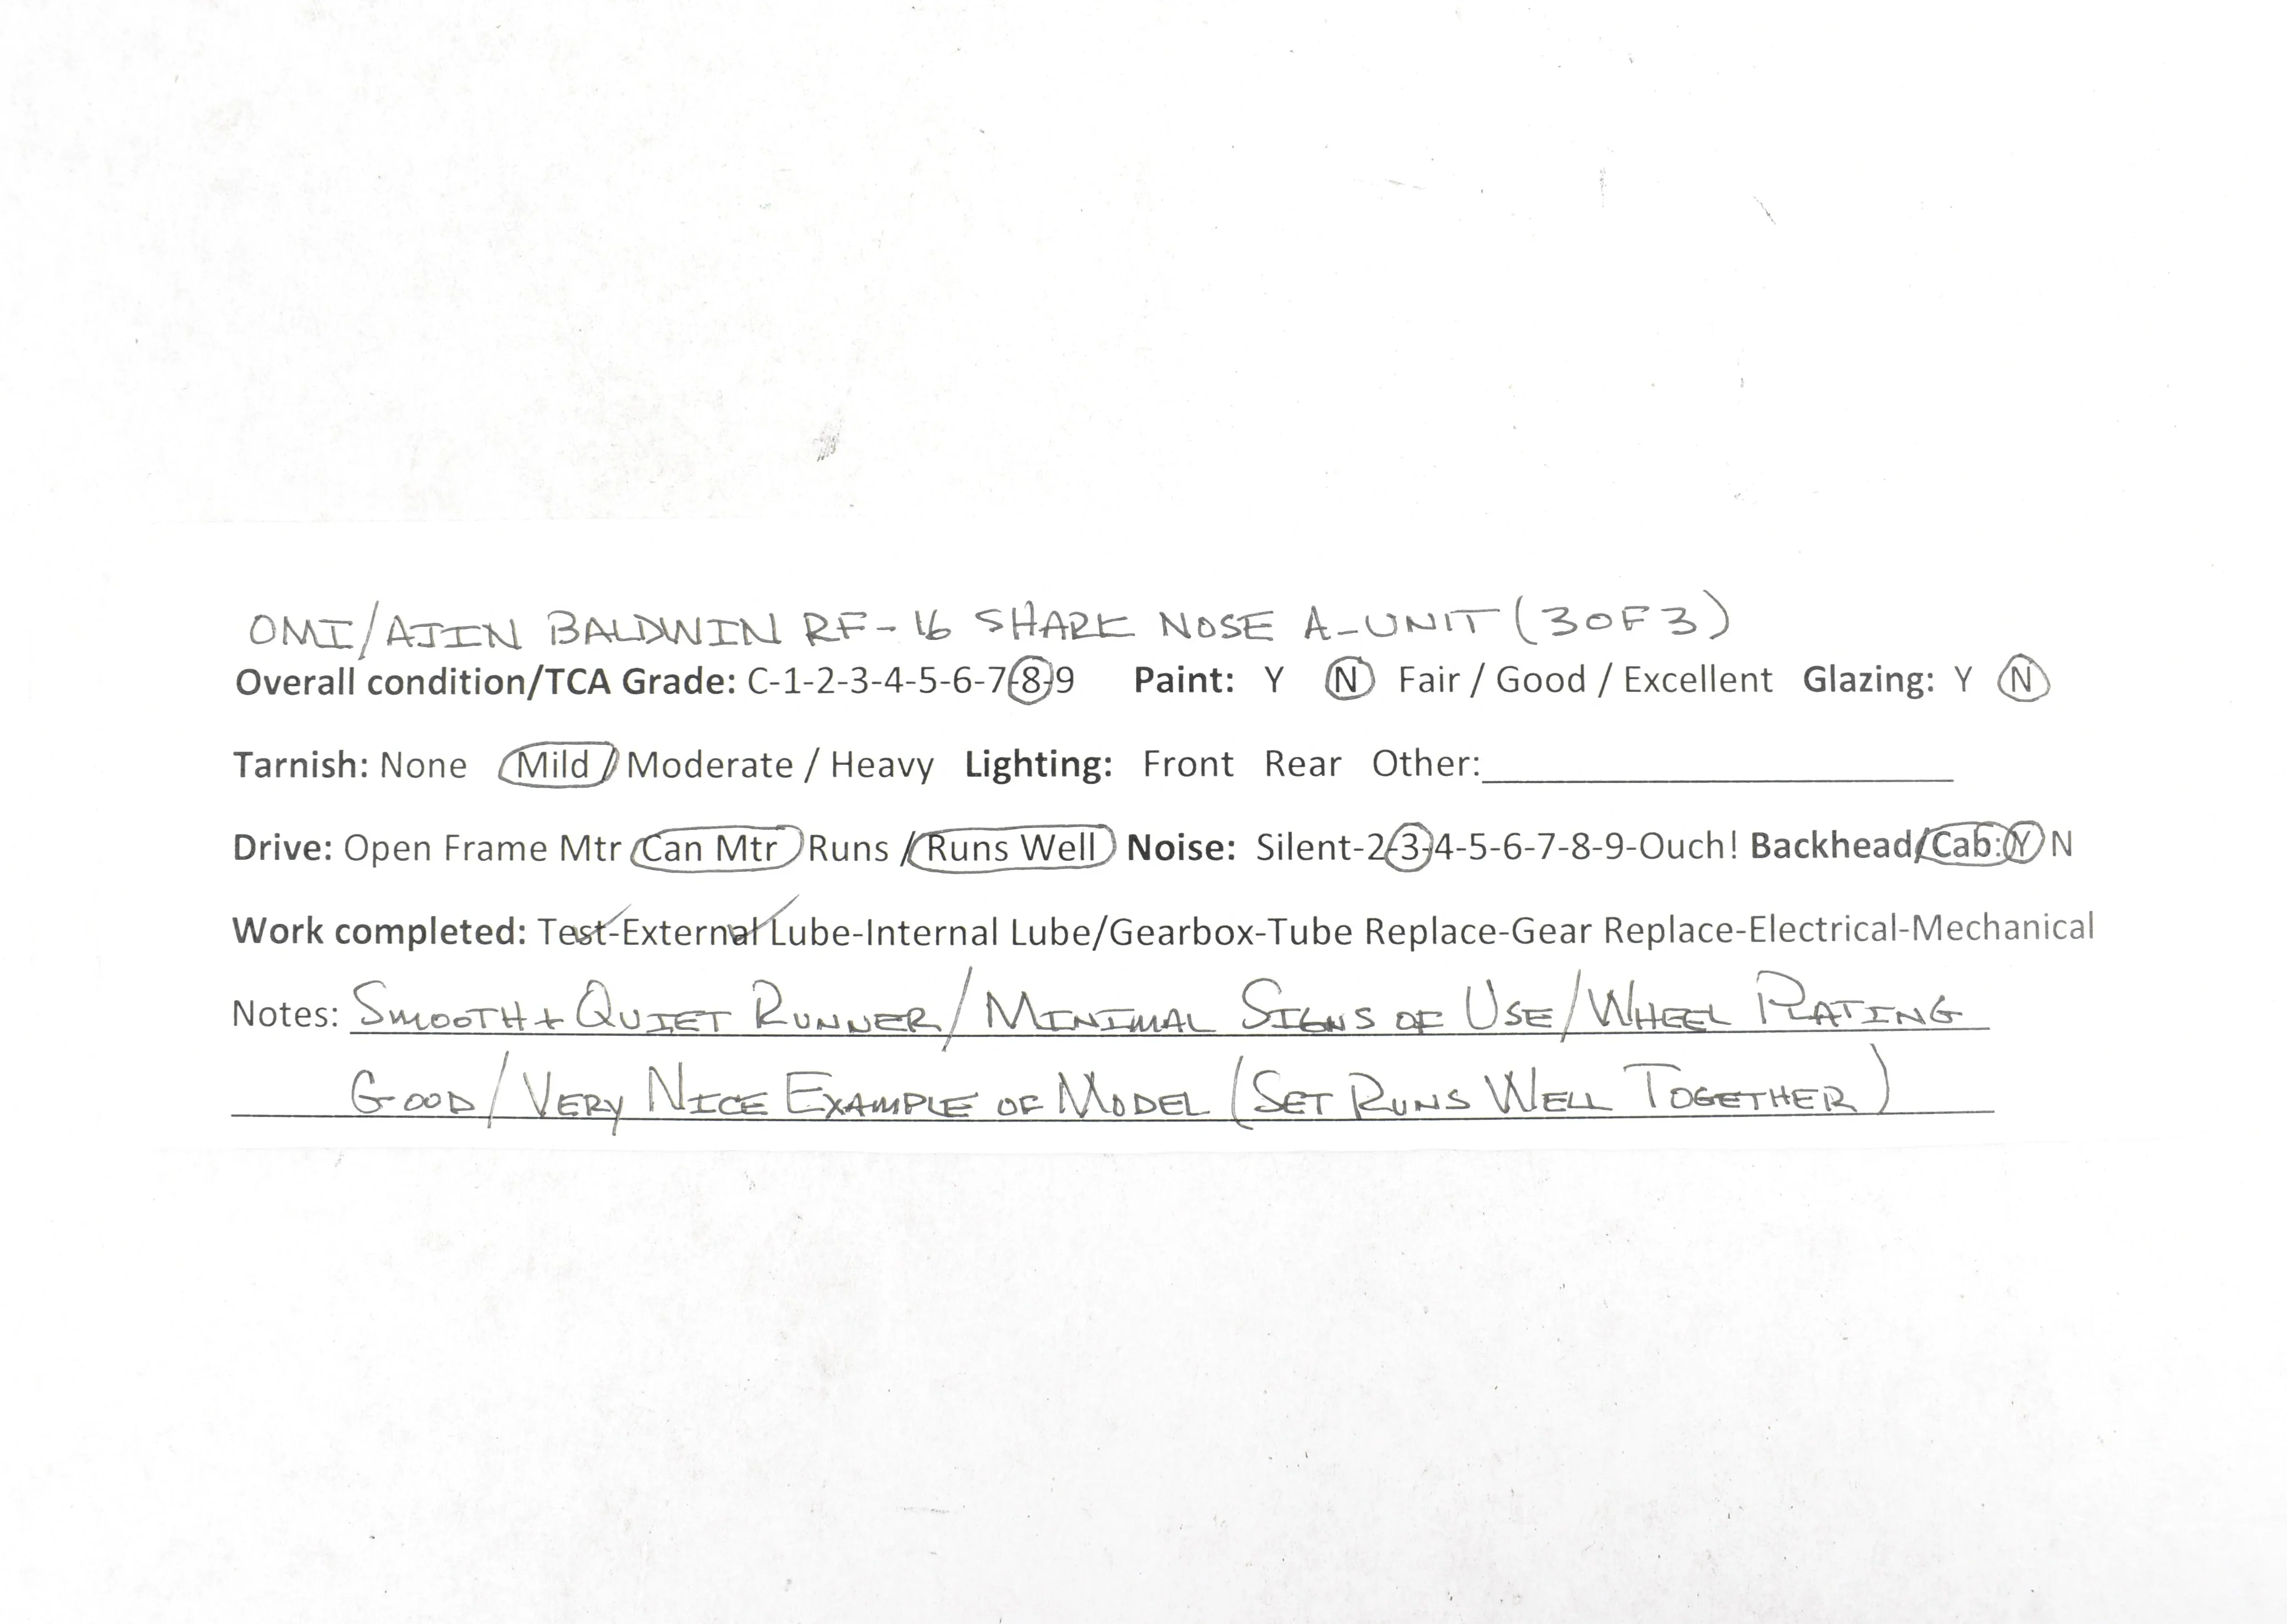 OMI/AJIN BALDWIN RF-16 SHARK NOSE A-UNIT (3 OF 3)
Overall condition/TCA Grade: C-1-2-3-4-5-6-7-8-9 Paint: Y N Fair / Good / Excellent Glazing: Y N
Tarnish: None Mild / Moderate / Heavy Lighting: Front Rear Other:
Drive: Open Frame Mtr Can Mtr Runs / Runs Well Noise: Silent-2-3-4-5-6-7-8-9-Ouch! Backhead/Cab: Y N
Work completed: Test-External Lube-Internal Lube/Gearbox-Tube Replace-Gear Replace-Electrical-Mechanical
Notes: SMOOTH + QUIET RUNNER/MINIMAL SIGNS OF USE/WHEEL PLATING
GOOD/VERY NICE EXAMPLE OF MODEL (SET RUNS WELL TOGETHER)